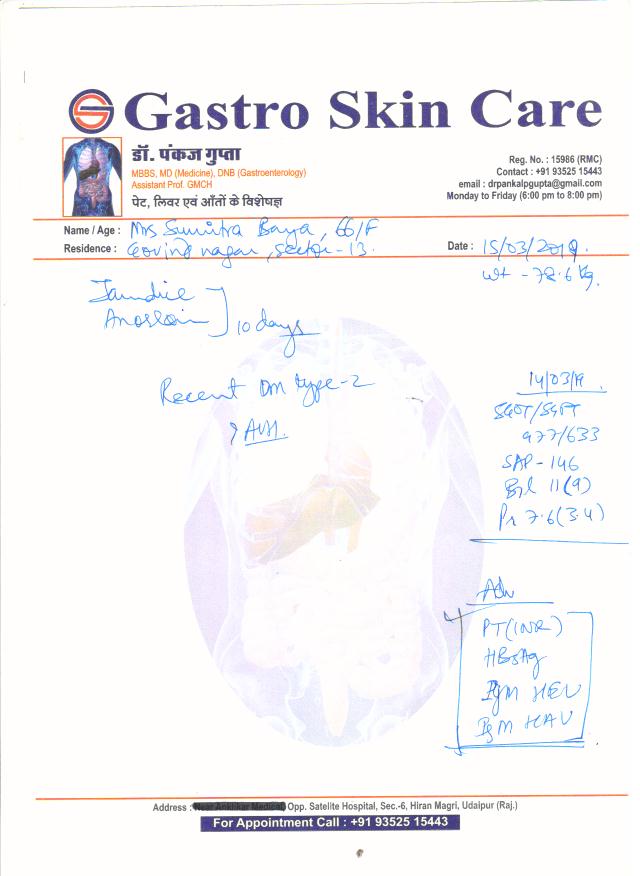 Gastro Skin Care
डॉ. पंकज गुप्ता
MBBS, MD (Medicine), DNB (Gastroenterology)
Assistant Prof. GMCH
पेट, लिवर एवं आँतों के विशेषज्ञ
Reg. No. : 15986 (RMC)
Contact : +91 93525 15443
email : drpankalpgupta@gmail.com
Monday to Friday (6:00 pm to 8:00 pm)
Name / Age : Mrs Sumitra Baya, 66/F
Residence : Govind nagar, sector-13.
Date : 15/03/2019.
wt - 78.6 kg.
Jaundice
10 days
Recent DM type-2
14/03/19
SGOT/SGPT
977/633
SAP-146
11(9)
Pr 7.6(3.4)
Adv
PT(INR)
HBsAg
IgM HEV
IgM HAV
Address : Near Ankhkar Medical, Opp. Satelite Hospital, Sec.-6, Hiran Magri, Udaipur (Raj.)
For Appointment Call : +91 93525 15443